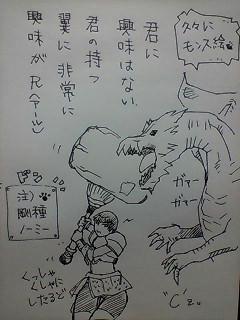 久々に
モンス絵
君に
興味はない、
君の持つ
翼に非常に
興味が
ガァー
ガァー
注)
剛種
ノーミー
くっしゃ
くしゃに
したるど
"C"